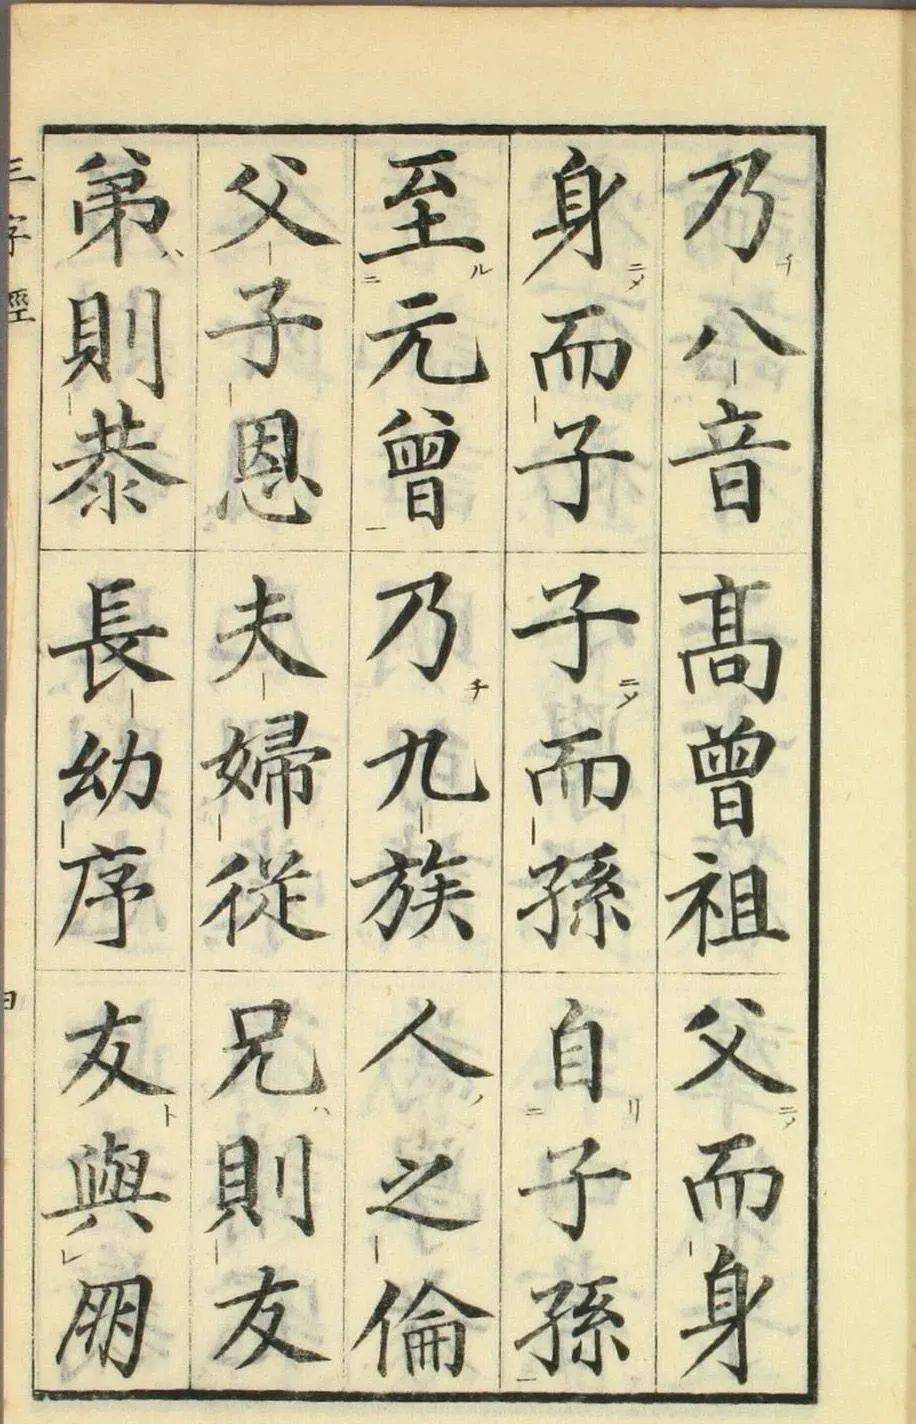 乃八音高曾祖父而身
身而子子而孫自子孫
至元曾乃九族人之倫
父子恩夫婦從兄則友
弟則恭長幼序友與朋
三字經